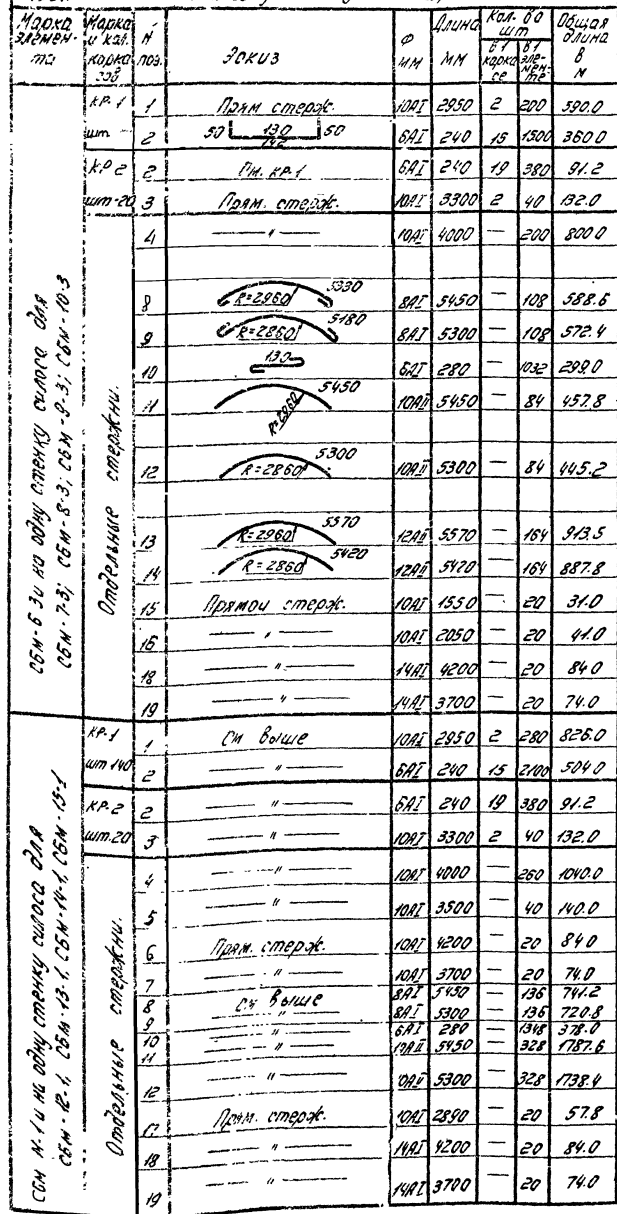 Марка элемента | Марка и кол. каркасов | № поз. | Эскиз | Ф мм | Длина мм | Кол-во шт в 1 каркасе | Кол-во шт в 1 элементе | Общая длина в м
СБМ-6-3 и на одну стенку силоса для СБМ-7-3; СБМ-8-3; СБМ-9-3; СБМ-10-3
КР-1 | 1 | Прям стерж. | 10АI | 2950 | 2 | 200 | 590.0
шт | 2 | 50 130 142 50 | 6АI | 240 | 15 | 1500 | 360.0
КР2 | 2 | См. КР-1 | 6АI | 240 | 19 | 380 | 91.2
шт-20 | 3 | Прям. стерж. | 10АI | 3300 | 2 | 40 | 132.0
Отдельные стержни.
4 | — " — | 10АI | 4000 | — | 200 | 800.0
8 | R=2960 5330 | 8АI | 5450 | — | 108 | 588.6
9 | R=2860 5180 | 8АI | 5300 | — | 108 | 572.4
10 | 130 | 6АI | 280 | — | 1032 | 299.0
11 | R=2960 5450 | 10АII | 5450 | — | 84 | 457.8
12 | R=2860 5300 | 10АII | 5300 | — | 84 | 445.2
13 | R=2960 5570 | 12АII | 5570 | — | 164 | 913.5
14 | R=2860 5420 | 12АII | 5420 | — | 164 | 887.8
15 | Прямой стерж. | 10АI | 1550 | — | 20 | 31.0
16 | — " — | 10АI | 2050 | — | 20 | 41.0
18 | — " — | 14АI | 4200 | — | 20 | 84.0
19 | — " — | 14АI | 3700 | — | 20 | 74.0
СБМ 11-1 и на одну стенку силоса для СБМ-12-1, СБМ-13-1, СБМ-14-1, СБМ-15-1
КР-1 | 1 | См выше | 10АI | 2950 | 2 | 280 | 826.0
шт 140 | 2 | — " — | 6АI | 240 | 15 | 2100 | 504.0
КР-2 | 2 | — " — | 6АI | 240 | 19 | 380 | 91.2
шт.20 | 3 | — " — | 10АI | 3300 | 2 | 40 | 132.0
Отдельные стержни.
4 | — " — | 10АI | 4000 | — | 260 | 1040.0
5 | — " — | 10АI | 3500 | — | 40 | 140.0
6 | Прям. стерж. | 10АI | 4200 | — | 20 | 84.0
7 | — " — | 10АI | 3700 | — | 20 | 74.0
8 | См выше | 8АI | 5450 | — | 136 | 741.2
9 | " | 8АI | 5300 | — | 136 | 720.8
10 | — " — | 6АI | 280 | — | 1348 | 378.0
11 | — " — | 10АII | 5450 | — | 328 | 1787.6
12 | — " — | 10АII | 5300 | — | 328 | 1738.4
Прям. стерж. | 10АI | 2890 | — | 20 | 57.8
18 | — " — | 14АI | 4200 | — | 20 | 84.0
19 | — " — | 14АI | 3700 | — | 20 | 74.0